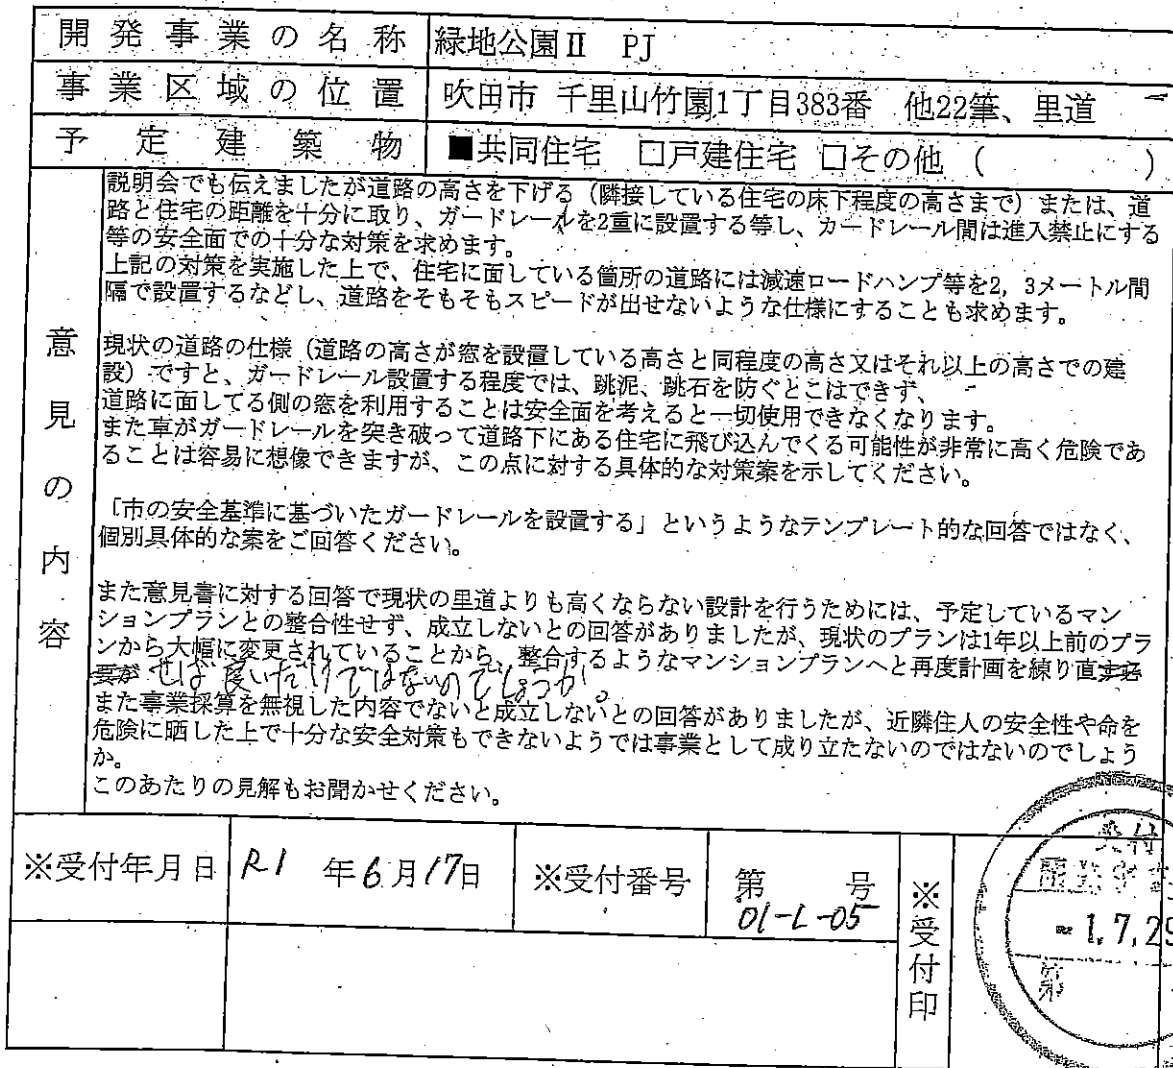 開発事業の名称 緑地公園Ⅱ PJ
事業区域の位置 吹田市 千里山竹園1丁目383番 他22筆、里道
予定建築物 ■共同住宅 □戸建住宅 □その他 ( )
意見の内容
説明会でも伝えましたが道路の高さを下げる（隣接している住宅の床下程度の高さまで）または、道
路と住宅の距離を十分に取り、ガードレールを2重に設置する等し、カードレール間は進入禁止にする
等の安全面での十分な対策を求めます。
上記の対策を実施した上で、住宅に面している箇所の道路には減速ロードハンプ等を2, 3メートル間
隔で設置するなどし、道路をそもそもスピードが出せないような仕様にすることも求めます。
現状の道路の仕様（道路の高さが窓を設置している高さと同程度の高さ又はそれ以上の高さでの建
設）ですと、ガードレール設置する程度では、跳泥、跳石を防ぐとこはできず、
道路に面してる側の窓を利用することは安全面を考えると一切使用できなくなります。
また車がガードレールを突き破って道路下にある住宅に飛び込んでくる可能性が非常に高く危険であ
ることは容易に想像できますが、この点に対する具体的な対策案を示してください。
「市の安全基準に基づいたガードレールを設置する」というようなテンプレート的な回答ではなく、
個別具体的な案をご回答ください。
また意見書に対する回答で現状の里道よりも高くならない設計を行うためには、予定しているマン
ションプランとの整合性せず、成立しないとの回答がありましたが、現状のプランは1年以上前のプラ
ンから大幅に変更されていることから、整合するようなマンションプランへと再度計画を練り直す必
要が せば良いだけではないのでしょうか。
また事業採算を無視した内容でないと成立しないとの回答がありましたが、近隣住人の安全性や命を
危険に晒した上で十分な安全対策もできないようでは事業として成り立たないのではないのでしょう
か。
このあたりの見解もお聞かせください。
※受付年月日 R1 年6月17日 ※受付番号 第 号
01-L-05
※受付印
受付
1.7.29
第